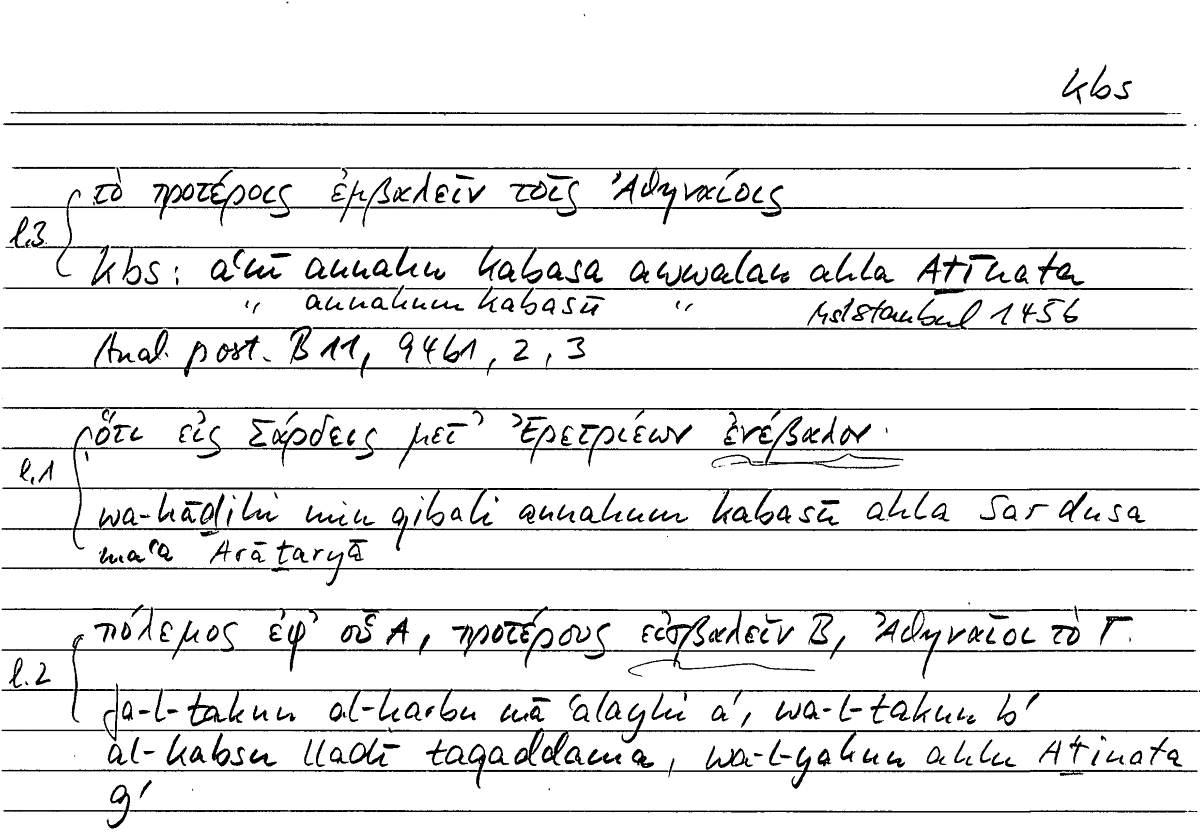 kbs
τὸ προτέροις ἐμβαλεῖν τοῖς Ἀθηναίοις
l.3
kbs: aʿnī annahu kabasa awwalan ahla Aṯīnata
" annahum kabasū " Ms Istanbul 1456
Anal. post. B 11, 94b1, 2, 3
ὅτι εἰς Σάρδεις μετ' Ἐρετριέων ἐνέβαλον·
l.1
wa-hāḏihi min qibali annahum kabasū ahla Sardusa
maʿa Arāṯaryā
πόλεμος ἐφ' οὗ Α, προτέρους εἰσβαλεῖν Β, Ἀθηναῖοι τὸ Γ.
l.2
fa-l-takun al-harbu mā ʿalayhi a', wa-l-takun b'
al-kabsu lladī taqaddama, wa-l-yakun ahlu Aṯinata
g'